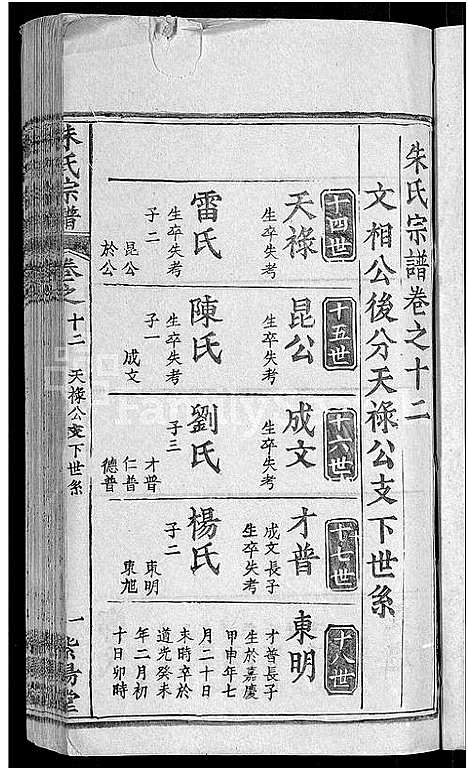 朱氏宗譜卷之十二
文相公後分天祿公支下世系
十四世
天祿
生卒失考
雷氏
生卒失考
子二
昆公
於公
十五世
昆公
生卒失考
陳氏
生卒失考
子一
成文
十六世
成文
生卒失考
劉氏
子三
才普
仁普
德普
十七世
才普
成文長子
生卒失考
楊氏
子二
東明
東旭
十八世
東明
才普長子
生於嘉慶
甲申年七
月二十日
未時卒於
道光癸未
年二月初
十日卯時
朱氏宗譜
卷之十二
天祿公支下世系
一
紫陽堂